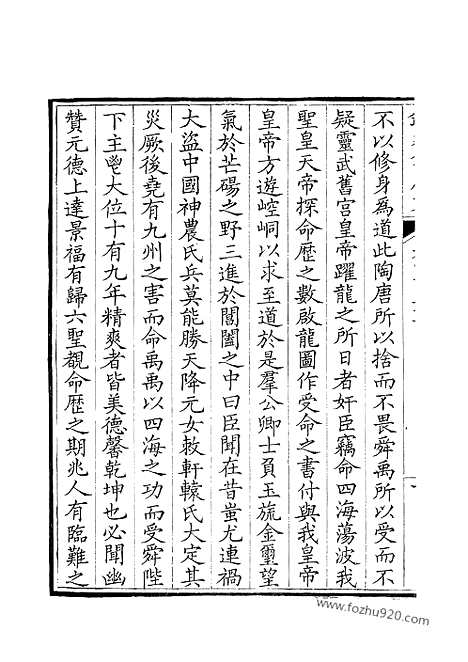 不以修身為道此陶唐所以捨而不畏舜禹所以受而不
疑靈武舊宫皇帝躍龍之所日者奸臣竊命四海蕩波我
聖皇天帝探命歷之數啟龍圖作受命之書付與我皇帝
皇帝方遊崆峒以求至道於是羣公卿士負玉旒金璽望
氣於芒碭之野三進於閶闔之中曰臣聞在昔蚩尤連禍
大盜中國神農氏兵莫能勝天降元女敕軒轅氏大定其
災厥後堯有九州之害而命禹禹以四海之功而受舜陛
下主鬯大位十有九年精爽者皆美德馨乾坤也必聞幽
贊元德上達景福有歸六聖覩命歷之期兆人有臨難之
www.fozhu920.com